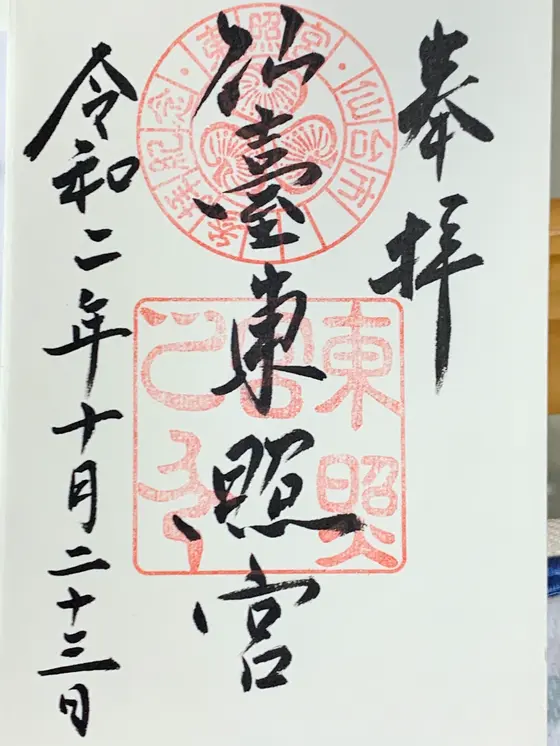 奉拝
仙臺東照宮
令和二年十月二十三日
東照宮
仙台市
参拝記念
東照宮